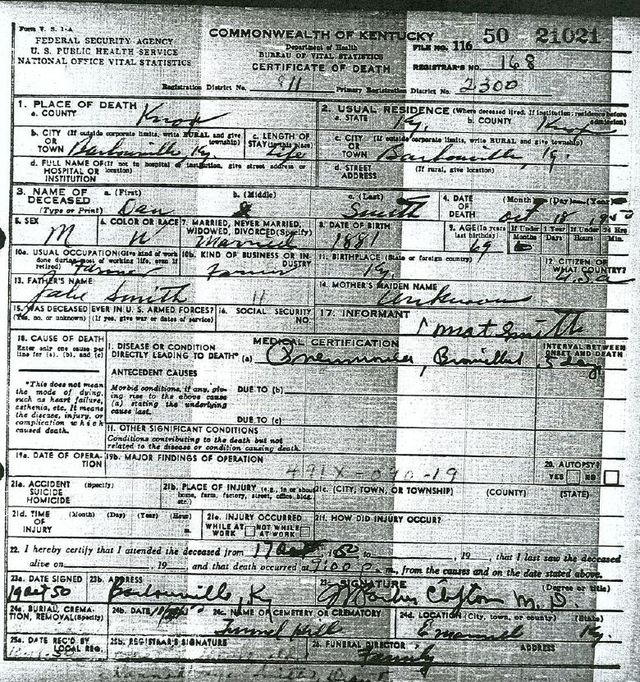 Form V. S. 1-A
FEDERAL SECURITY AGENCY
U. S. PUBLIC HEALTH SERVICE
NATIONAL OFFICE VITAL STATISTICS
COMMONWEALTH OF KENTUCKY
Department of Health
BUREAU OF VITAL STATISTICS
CERTIFICATE OF DEATH
FILE NO. 116 50 21021
REGISTRAR'S NO. 168
Registration District No. 811 Primary Registration District No. 2300
1. PLACE OF DEATH
a. COUNTY Knox
2. USUAL RESIDENCE (Where deceased lived. If institution: residence before admission)
a. STATE Ky. b. COUNTY Knox
b. CITY (If outside corporate limits, write RURAL and give township) OR TOWN Barbourville Ky
c. LENGTH OF STAY (in this place) Life
c. CITY (If outside corporate limits, write RURAL and give township) OR TOWN Barbourville Ky.
d. FULL NAME OF (If not in hospital or institution, give street address or location) HOSPITAL OR INSTITUTION
d. STREET ADDRESS (If rural, give location)
3. NAME OF DECEASED (Type or Print)
a. (First) Dan b. (Middle) c. (Last) Smith
4. DATE OF DEATH (Month) (Day) (Year) Oct 18 1950
5. SEX M
6. COLOR OR RACE W
7. MARRIED, NEVER MARRIED, WIDOWED, DIVORCED (Specify) Married
8. DATE OF BIRTH 1881
9. AGE (In years last birthday) 69 If Under 1 Year Months Days If Under 24 Hrs. Hours Min.
10a. USUAL OCCUPATION (Give kind of work done during most of working life, even if retired) Farmer
10b. KIND OF BUSINESS OR INDUSTRY Farm
11. BIRTHPLACE (State or foreign country) Ky.
12. CITIZEN OF WHAT COUNTRY? U.S.A
13. FATHER'S NAME Jake Smith
14. MOTHER'S MAIDEN NAME Unknown
15. WAS DECEASED EVER IN U. S. ARMED FORCES? (Yes, no, or unknown) (If yes, give war or dates of service)
16. SOCIAL SECURITY NO.
17. INFORMANT Smith
18. CAUSE OF DEATH
Enter only one cause per line for (a), (b), and (c)
MEDICAL CERTIFICATION
I. DISEASE OR CONDITION DIRECTLY LEADING TO DEATH* (a) Pneumonia, Bronchial
INTERVAL BETWEEN ONSET AND DEATH 5 days
*This does not mean the mode of dying, such as heart failure, asthenia, etc. It means the disease, injury, or complication which caused death.
ANTECEDENT CAUSES
Morbid conditions, if any, giving rise to the above cause (a) stating the underlying cause last.
DUE TO (b)
DUE TO (c)
II. OTHER SIGNIFICANT CONDITIONS
Conditions contributing to the death but not related to the disease or condition causing death.
19a. DATE OF OPERATION
19b. MAJOR FINDINGS OF OPERATION
491X-090-19
20. AUTOPSY? YES NO
21a. ACCIDENT SUICIDE HOMICIDE (Specify)
21b. PLACE OF INJURY (e.g., in or about home, farm, factory, street, office bldg., etc.)
21c. (CITY, TOWN, OR TOWNSHIP) (COUNTY) (STATE)
21d. TIME OF INJURY (Month) (Day) (Year) (Hour) m.
21e. INJURY OCCURRED WHILE AT WORK NOT WHILE AT WORK
21f. HOW DID INJURY OCCUR?
22. I hereby certify that I attended the deceased from 17 Oct 1950 to , 19 , that I last saw the deceased
alive on , 19 , and that death occurred at 9:00 P. m., from the causes and on the date stated above.
23a. DATE SIGNED 19 Oct 50
23b. ADDRESS Barbourville, Ky
23c. SIGNATURE (Degree or title) Clifton M. D.
24a. BURIAL, CREMATION, REMOVAL (Specify)
24b. DATE
24c. NAME OF CEMETERY OR CREMATORY Tunnel Hill
24d. LOCATION (City, town, or county) (State) Emanuel Ky.
25a. DATE REC'D BY LOCAL REG.
25b. REGISTRAR'S SIGNATURE
26. FUNERAL DIRECTOR Family ADDRESS